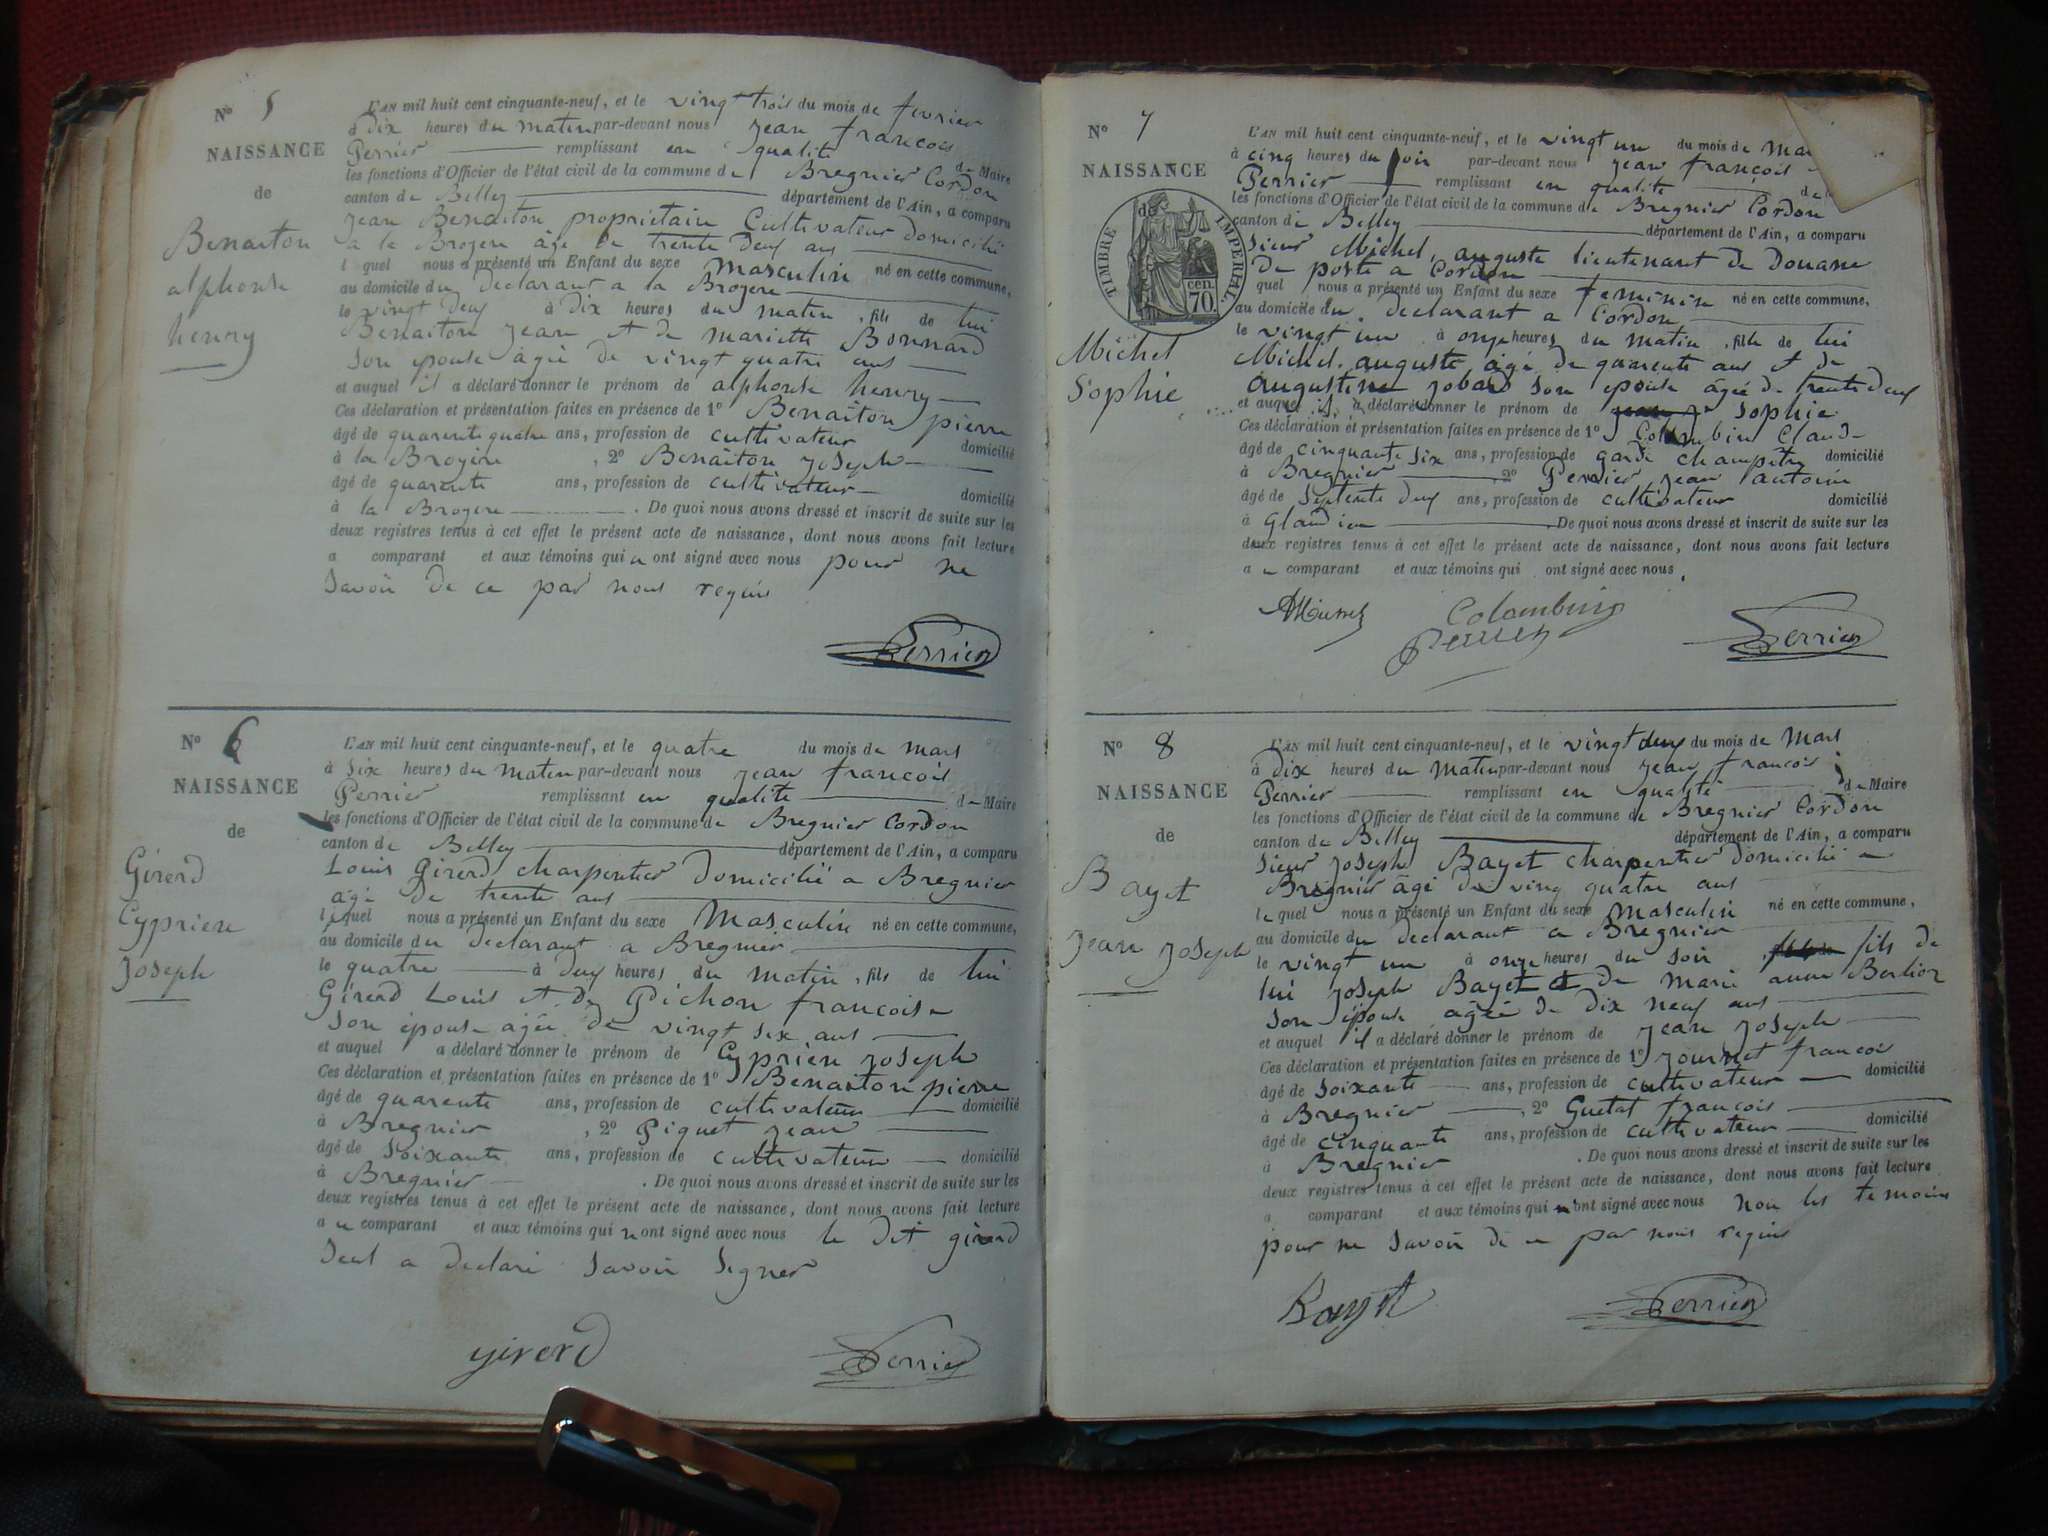 N° 5
NAISSANCE
de
Benaiton
alphonse
henry
L'AN mil huit cent cinquante-neuf, et le vingt trois du mois de fevrier
à dix heures du matin par-devant nous jean francois
Perrier remplissant en qualité de Maire
les fonctions d'Officier de l'état civil de la commune de Bregnier Cordon
canton de Belley département de l'Ain, a comparu
jean Benaiton propriétaire Cultivateur domicilié
a la Broyere âgé de trente deux ans
l quel nous a présenté un Enfant du sexe masculin né en cette commune,
au domicile du declarant a la Broyere
le vingt deux à dix heures du matin, fils de lui
Benaiton jean et de mariette Bonnard
son épouse âgée de vingt quatre ans
et auquel il a déclaré donner le prénom de alphonse henry
Ces déclaration et présentation faites en présence de 1° Benaiton pierre
âgé de quarente quatre ans, profession de cultivateur domicilié
à la Broyere, 2° Benaiton joseph
âgé de quarente ans, profession de cultivateur domicilié
à la Broyere. De quoi nous avons dressé et inscrit de suite sur les
deux registres tenus à cet effet le présent acte de naissance, dont nous avons fait lecture
a comparant et aux témoins qui n ont signé avec nous pour ne
savoir de ce par nous requis
Perrier
N° 6
NAISSANCE
de
Girerd
Cyprien
joseph
L'AN mil huit cent cinquante-neuf, et le quatre du mois de mars
à six heures du matin par-devant nous jean francois
Perrier remplissant en qualite de Maire
les fonctions d'Officier de l'état civil de la commune de Bregnier Cordon
canton de Belley département de l'Ain, a comparu
Louis Girerd charpentier domicilié a Bregnier
âgé de trente ans
lequel nous a présenté un Enfant du sexe Masculin né en cette commune,
au domicile du declarant a Bregnier
le quatre à deux heures du matin, fils de lui
Girerd Louis et de Pichon francoise
son épouse âgée de vingt six ans
et auquel a déclaré donner le prénom de Cyprien joseph
Ces déclaration et présentation faites en présence de 1° Benaiton pierre
âgé de quarente ans, profession de cultivateur domicilié
à Bregnier, 2° Piquet jean
âgé de soixante ans, profession de cultivateur domicilié
à Bregnier. De quoi nous avons dressé et inscrit de suite sur les
deux registres tenus à cet effet le présent acte de naissance, dont nous avons fait lecture
a u comparant et aux témoins qui n ont signé avec nous le dit girerd
seul a declaré savoir signer
girerd
Perrier
N° 7
NAISSANCE
de
TIMBRE IMPERIAL
70 cen.
Michel
Sophie
L'AN mil huit cent cinquante-neuf, et le vingt un du mois de mar
à cinq heures du soir par-devant nous jean françois
Perrier remplissant en qualite de
les fonctions d'Officier de l'état civil de la commune de Bregnier Cordon
canton de Belley département de l'Ain, a comparu
sieur Michel, auguste lieutenant de Douane
de poste a Cordon
quel nous a présenté un Enfant du sexe feminin né en cette commune,
au domicile du declarant a Cordon
le vingt un à onze heures du matin, fille de lui
Michel auguste âgé de quarente ans et de
augustine jobard son épouse âgée de trente deux
et auquel il a déclaré donner le prénom de Sophie
Ces déclaration et présentation faites en présence de 1° Colombin Claude
âgé de cinquante six ans, profession de garde champêtre domicilié
à Bregnier, 2° Perrier jean antoine
âgé de septente deux ans, profession de cultivateur domicilié
à Glandieu. De quoi nous avons dressé et inscrit de suite sur les
deux registres tenus à cet effet le présent acte de naissance, dont nous avons fait lecture
a u comparant et aux témoins qui ont signé avec nous.
Colombin
Perrier
Perrier
N° 8
NAISSANCE
de
Bayet
jean joseph
L'AN mil huit cent cinquante-neuf, et le vingt deux du mois de Mars
à dix heures du Matin par-devant nous jean francois
Perrier remplissant en qualité de Maire
les fonctions d'Officier de l'état civil de la commune de Bregnier Cordon
canton de Belley département de l'Ain, a comparu
sieur joseph Bayet charpentier domicilié a
Bregnier âgé de ving quatre ans
le quel nous a présenté un Enfant du sexe masculin né en cette commune,
au domicile du declarant a Bregnier
le vingt un à onze heures du soir, fils de
lui joseph Bayet et de marie anne Berlior
son épouse âgée de dix neuf ans
et auquel il a déclaré donner le prénom de jean joseph
Ces déclaration et présentation faites en présence de 1° journet francois
âgé de soixante ans, profession de cultivateur domicilié
à Bregnier, 2° Guetat francois
âgé de cinquante ans, profession de cultivateur domicilié
à Bregnier. De quoi nous avons dressé et inscrit de suite sur les
deux registres tenus à cet effet le présent acte de naissance, dont nous avons fait lecture
a comparant et aux témoins qui n'ont signé avec nous non les temoins
pour ne savoir de ce par nous requis
Bayet
Perrier